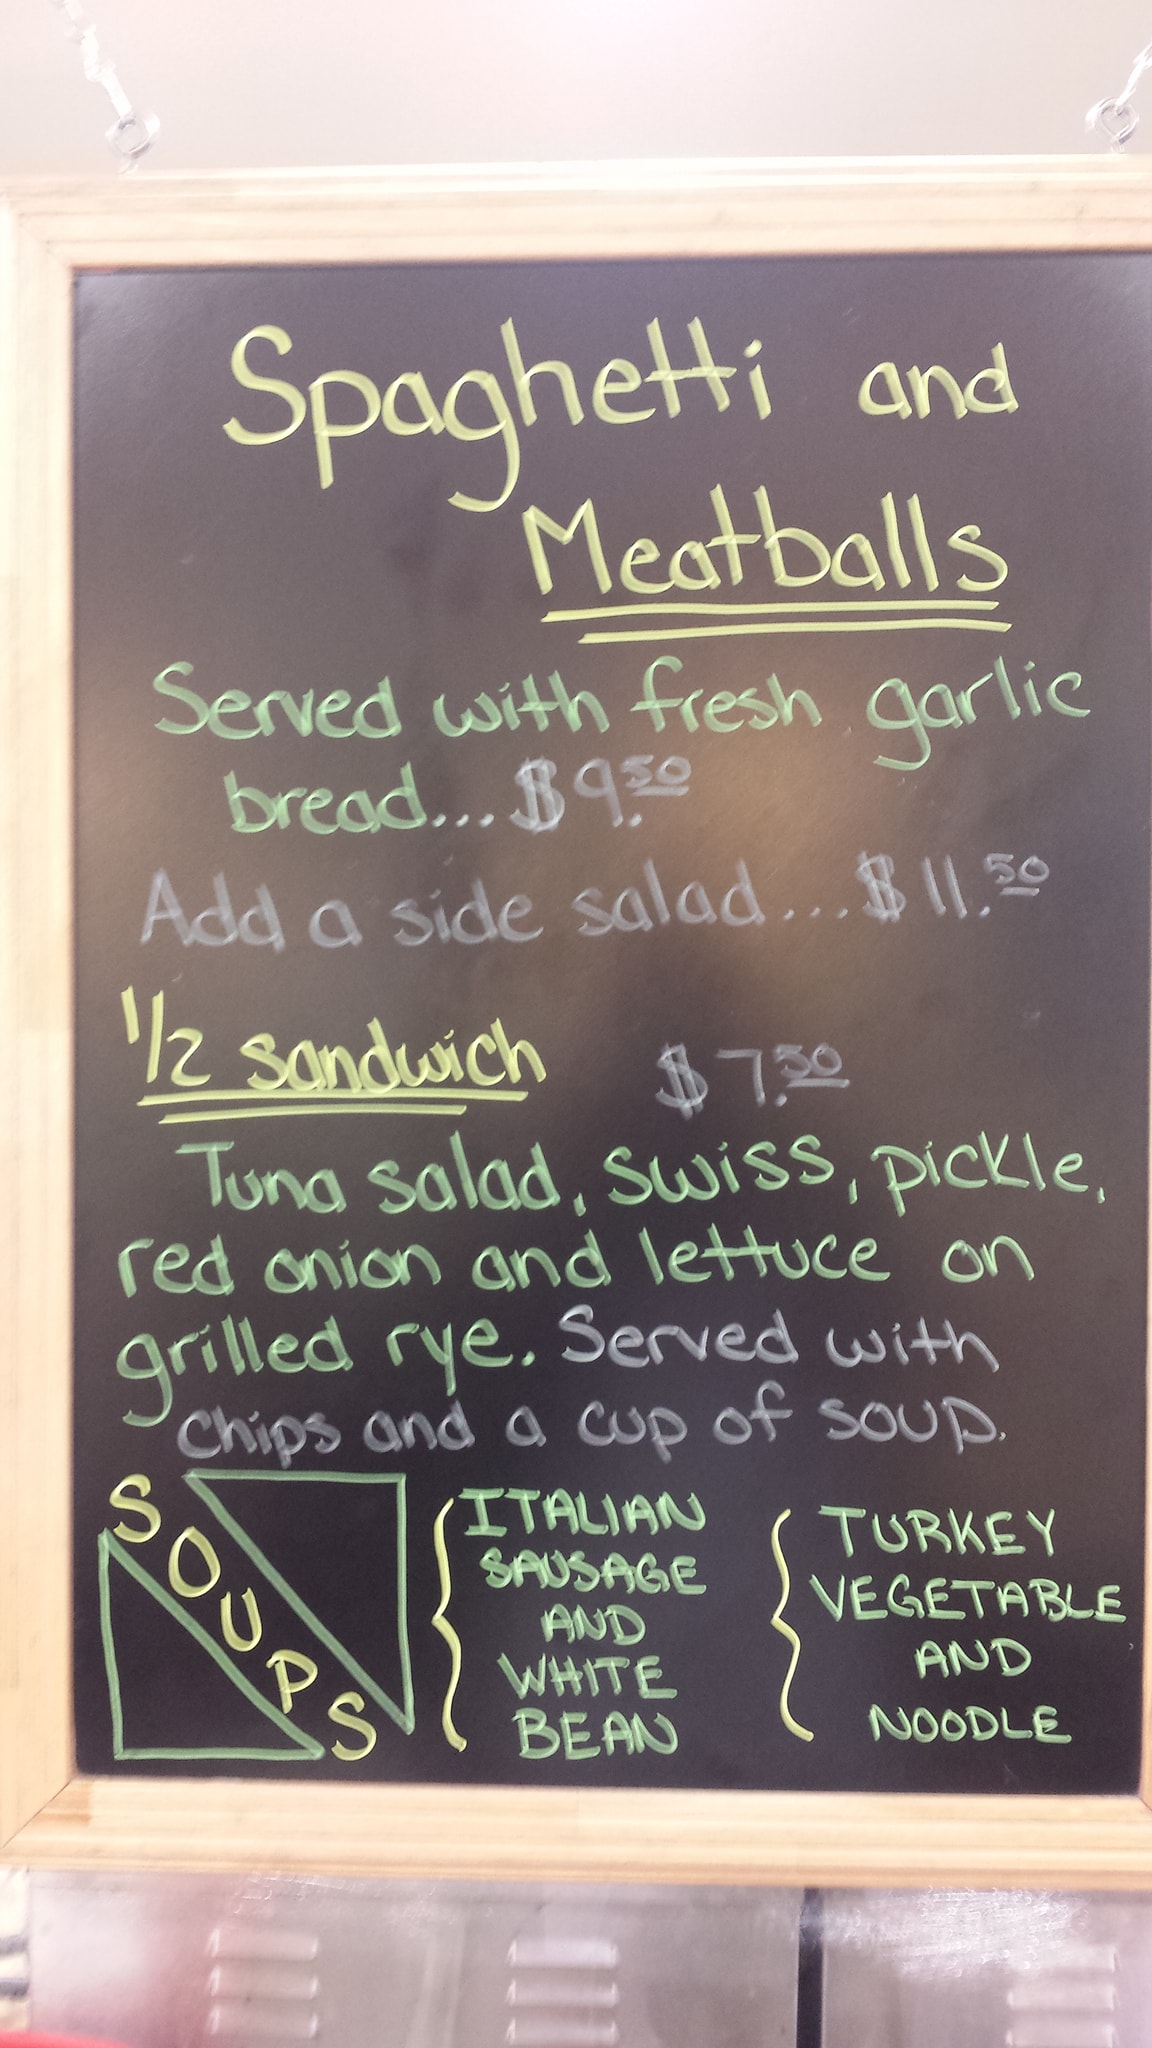 Spaghetti and
Meatballs
Served with fresh garlic
bread... $9.50
Add a side salad... $11.50
1/2 sandwich $7.50
Tuna salad, swiss, pickle,
red onion and lettuce on
grilled rye. Served with
chips and a cup of soup.
SOUPS
ITALIAN
SAUSAGE
AND
WHITE
BEAN
TURKEY
VEGETABLE
AND
NOODLE